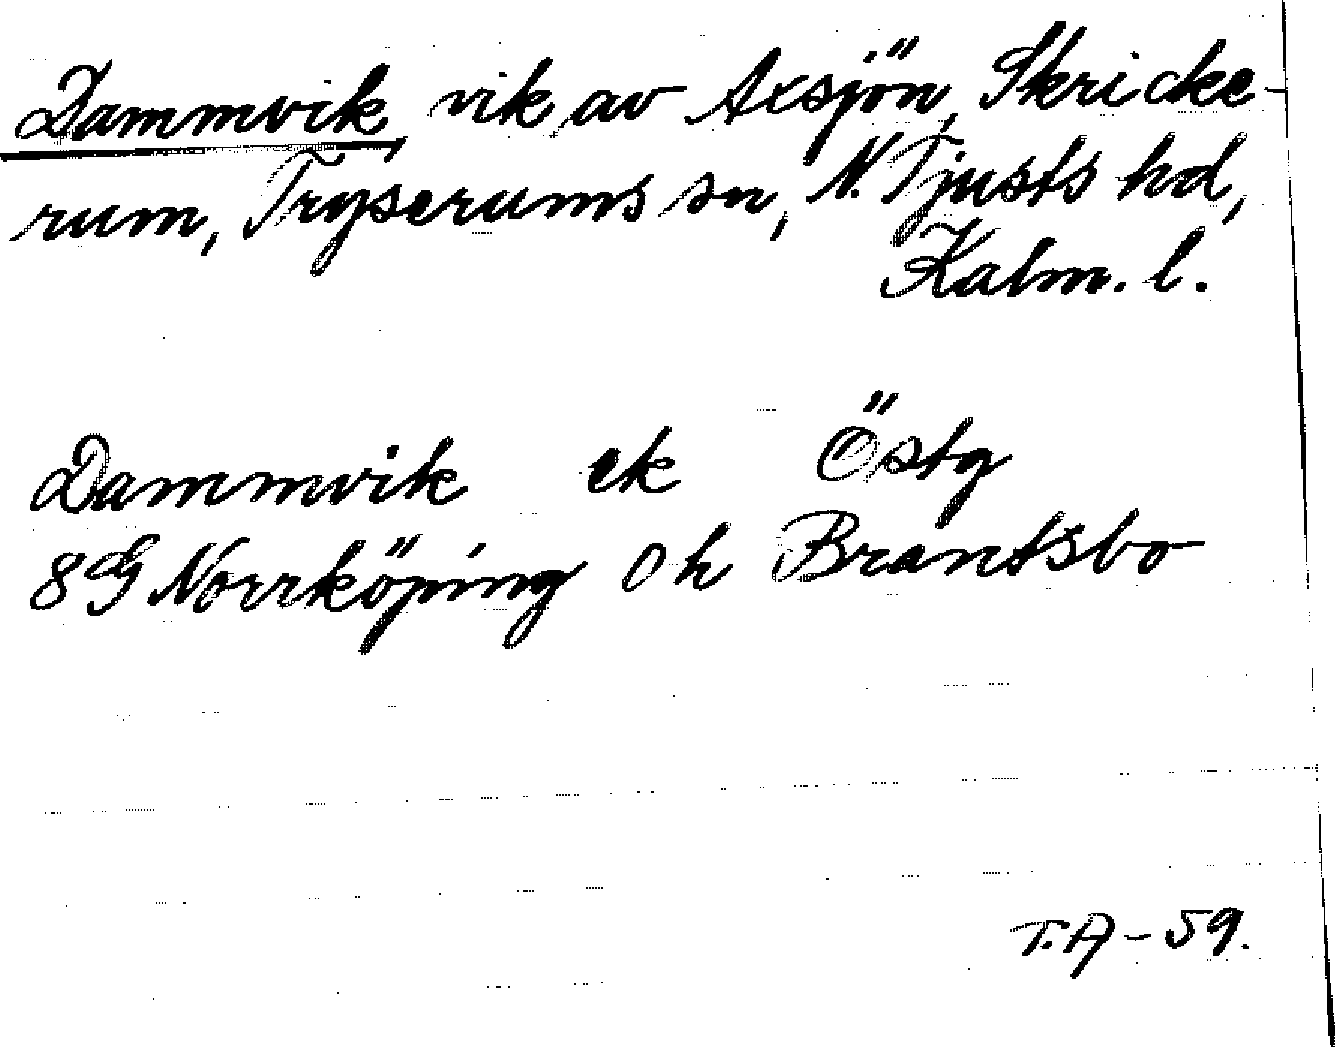 Dammvik, vik av Axsjön, Skricke-
rum, Tryserums sn, N. Tjusts hd,
Kalm. l.
Dammvik ek Östg
8G Norrköping Oh Brantsbo
T.A - 59.